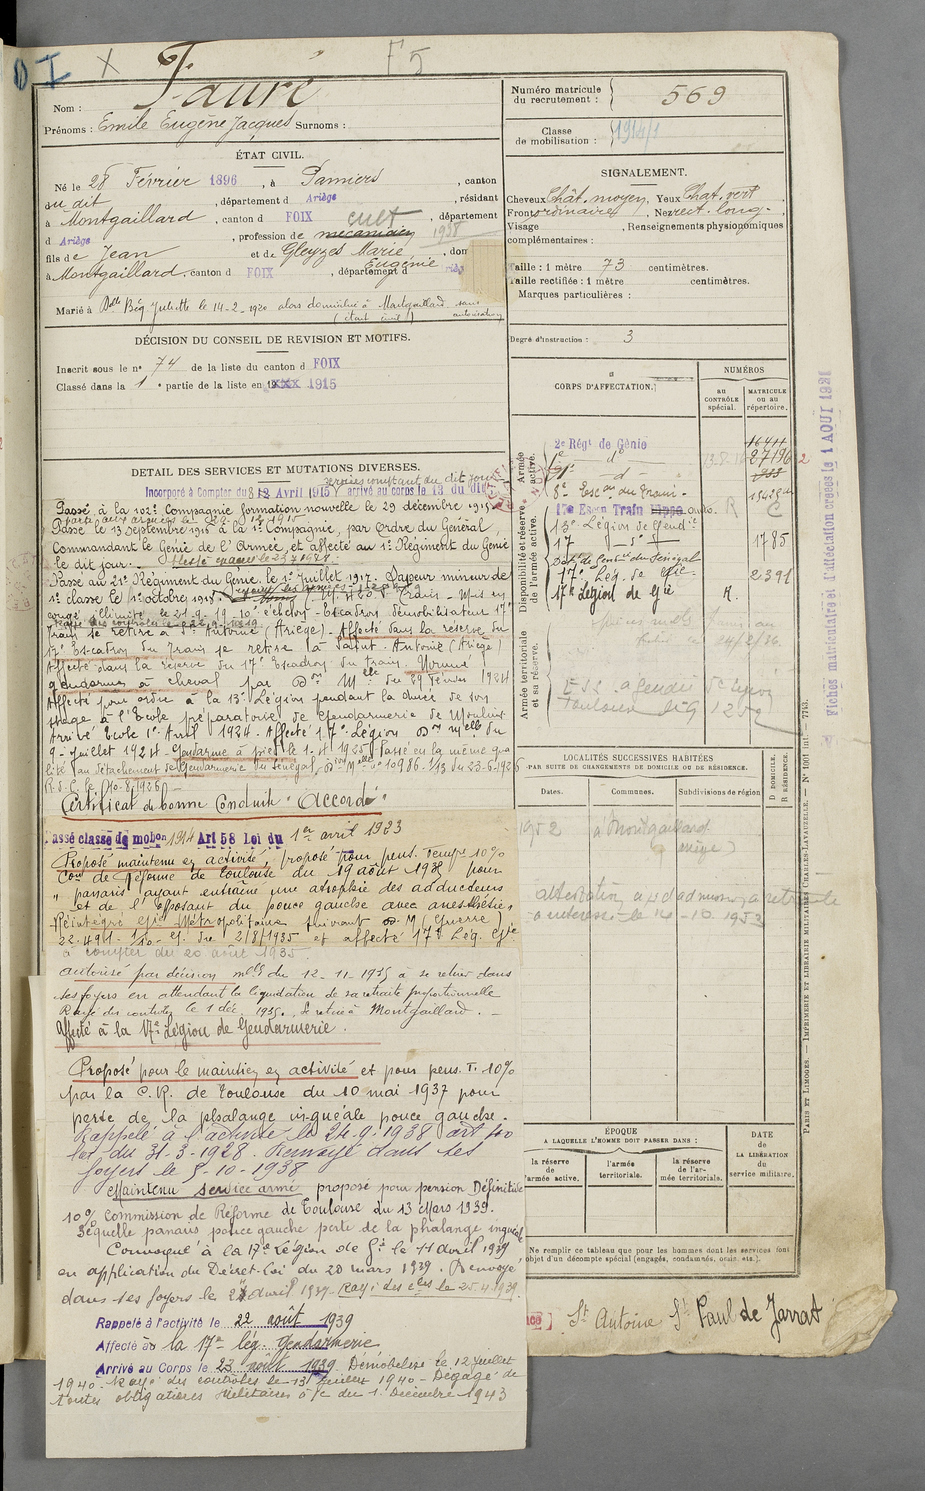 D I X F5
Nom : Fauré
Prénoms : Emile Eugène Jacques Surnoms :
ÉTAT CIVIL.
Né le 28 Février 1896, à Pamiers, canton
du dit, département d Ariège, résidant
à Montgaillard, canton d FOIX, département
d Ariège, profession de mécanicien cult 1938
fils de Jean et de Gleyzes Marie Eugénie, dom
à Montgaillard, canton d FOIX, département d
Marié à Delle Bég Juliette le 14-2-1920 alors domicilié à Montgaillard sans autorisation
(état civil)
DÉCISION DU CONSEIL DE REVISION ET MOTIFS.
Inscrit sous le n° 74 de la liste du canton d FOIX
Classé dans la 1e partie de la liste en 1915
DÉTAIL DES SERVICES ET MUTATIONS DIVERSES.
services comptant du dit jour
Incorporé à Compter du 8 Avril 1915 arrivé au corps le 13 du dit
Passé à la 102e Compagnie formation nouvelle le 29 décembre 1915
Passé le 13 Septembre 1916 à la 1e Compagnie, par Ordre du Général
Commandant le Génie de l'Armée, et affecté au 1er Régiment du Génie
le dit jour.
Passé au 21e Régiment du Génie le 1er Juillet 1917. Sapeur mineur de
1e classe le 1er octobre 1918.
congé illimité le 21-9-19 10e échelon - Escadron démobilisateur 17e
Train se retire à St Antoine (Ariège) - Affecté dans la réserve du
17e Escadron du Train se retire à Saint Antoine (Ariège)
Affecté dans la réserve du 17e Escadron du train. Nommé
gendarme à cheval par Don Mlle du 29 Février 1924
Affecté pour ordre à la 13e Légion pendant la durée de son
stage à l'Ecole préparatoire de Gendarmerie de Moulins
Arrivé Ecole 1er Avril 1924. Affecté 17e Légion Don Mlle du
9-Juillet 1924 - Gendarme à pied le 1-4 1925 Passé en la même qua
lité au détachement de Gendarmerie du Sénégal, Don Melle n° 10986-1/13 du 23-6-1926
Certificat de bonne Conduite "Accordé"
Passé classe de mobon 1914 Art 58 Loi du 1er avril 1923
Proposé maintenu en activité, proposé pour pens. Tempre 10%
Con de Réforme de Toulouse du 19 août 1935 pour
" panaris ayant entraîné une atrophie des adducteurs
et de l'opposant du pouce gauche avec anesthésie"
Réintégré Gie Métropolitaine suivant D.M (Guerre)
22.491-1/10-G. du 2/8/1935 et affecté 17e Lég. Gie
à compter du 20 août 1935.
autorisé par décision melle du 12-11-1935 à se retirer dans
ses foyers en attendant la liquidation de sa retraite proportionnelle
Rayé des contrôles le 1 déc. 1935, se retire à Montgaillard.
Affecté à la 17e Légion de Gendarmerie.
Proposé pour le maintien en activité et pour pens. T. 10%
par la C.R. de Toulouse du 10 mai 1937 pour
perte de la phalange unguéale pouce gauche.
Rappelé à l'activité le 24.9.1938 art 40
loi du 31-3-1928. Renvoyé dans ses
foyers le 5-10-1938
Maintenu service armé proposé pour pension Définitive
10% Commission de Réforme de Toulouse du 13 Mars 1939.
Séquelle panaris pouce gauche perte de la phalange unguéale
Convoqué à la 17e Légion de Gie le 11 Avril 1939
en application du Décret-Loi du 20 mars 1939. Renvoyé
dans ses foyers le 24 avril 1939. Rayé des cles le 25.4.1939.
Rappelé à l'activité le 22 août 1939
Affecté à la 17e lég. gendarmerie
Arrivé au Corps le 23 août 1939. Démobilisé le 12 juillet
1940. Rayé des contrôles le 13 juillet 1940 - Dégagé de
toutes obligations Militaires à/c du 1 Décembre 1943
Numéro matricule du recrutement : 569
Classe de mobilisation : 1914/1
SIGNALEMENT.
Cheveux Chât. moyen, Yeux Chat. vert
Front ordinaire, Nez rect. long.
Visage , Renseignements physionomiques
complémentaires :
Taille : 1 mètre 73 centimètres.
Taille rectifiée : 1 mètre centimètres.
Marques particulières :
Degré d'instruction : 3
CORPS D'AFFECTATION.
NUMÉROS
AU CONTRÔLE spécial.
MATRICULE ou au répertoire.
Armée active.
2e Régt de Génie
1e d°
8e Escon du Train
Disponibilité et réserve de l'armée active.
17e Escon Train
13e Légion de Gendie
17 d° 1785
Dét de Gendie du Sénégal
17e Lég. de Gie. 2391
17e Légion de Gie R.
Armée territoriale et sa réserve.
LOCALITÉS SUCCESSIVES HABITÉES
PAR SUITE DE CHANGEMENTS DE DOMICILE OU DE RÉSIDENCE.
Dates.
Communes.
Subdivisions de région
D. DOMICILE.
R. RÉSIDENCE.
1952 à Montgaillard
ÉPOQUE
A LAQUELLE L'HOMME DOIT PASSER DANS :
la réserve de l'armée active.
l'armée territoriale.
la réserve de l'armée territoriale.
DATE de LA LIBÉRATION du service militaire.
Ne remplir ce tableau que pour les hommes dont les services font
objet d'un décompte spécial (engagés, condamnés, omis, etc.).
St Antoine St Paul de Jarrat
Fiches matriculaire et d'affectation créées le 1 AOUT 1921
PARIS ET LIMOGES. — IMPRIMERIE ET LIBRAIRIE MILITAIRES CHARLES-LAVAUZELLE. — N° 1001 int. — 7753.